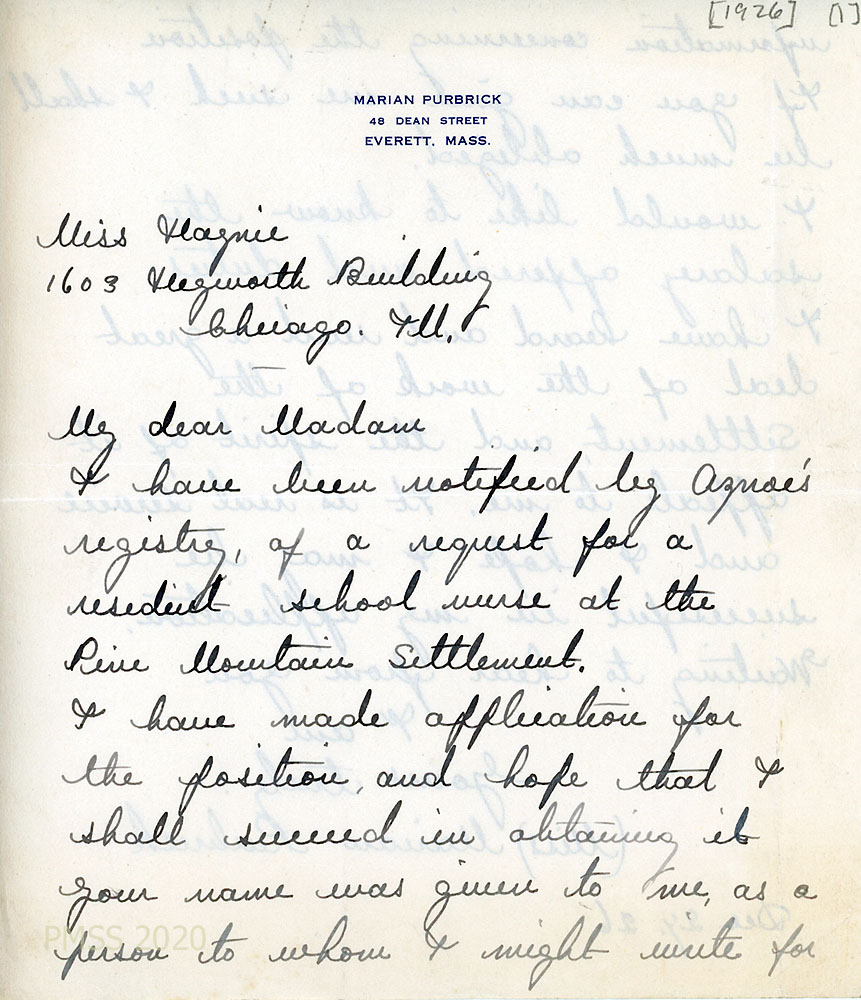 [1926] [1]
MARIAN PURBRICK
48 DEAN STREET
EVERETT, MASS.
Miss Hagnie
1603 Heyworth Building
Chicago. Ill.
My dear Madam
I have been notified by Aznoe's
registry, of a request for a
resident school nurse at the
Pine Mountain Settlement.
I have made application for
the position, and hope that I
shall succeed in obtaining it
your name was given to me, as a
person to whom I might write for
PMSS 2020